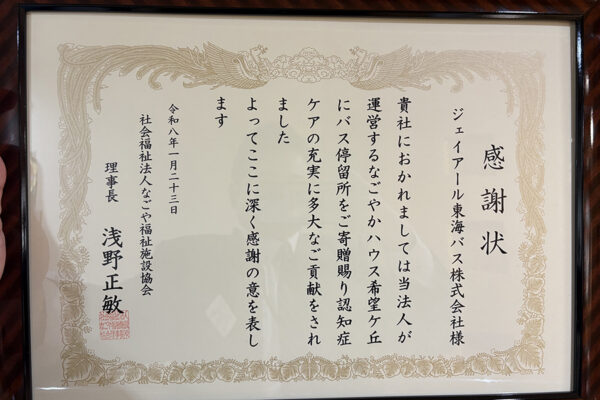 感謝状
ジェイアール東海バス株式会社様
貴社におかれましては当法人が
運営するなごやかハウス希望ケ丘
にバス停留所をご寄贈賜り認知症
ケアの充実に多大なご貢献をされ
ました
よってここに深く感謝の意を表し
ます
令和八年一月二十三日
社会福祉法人なごや福祉施設協会
理事長 浅野正敏